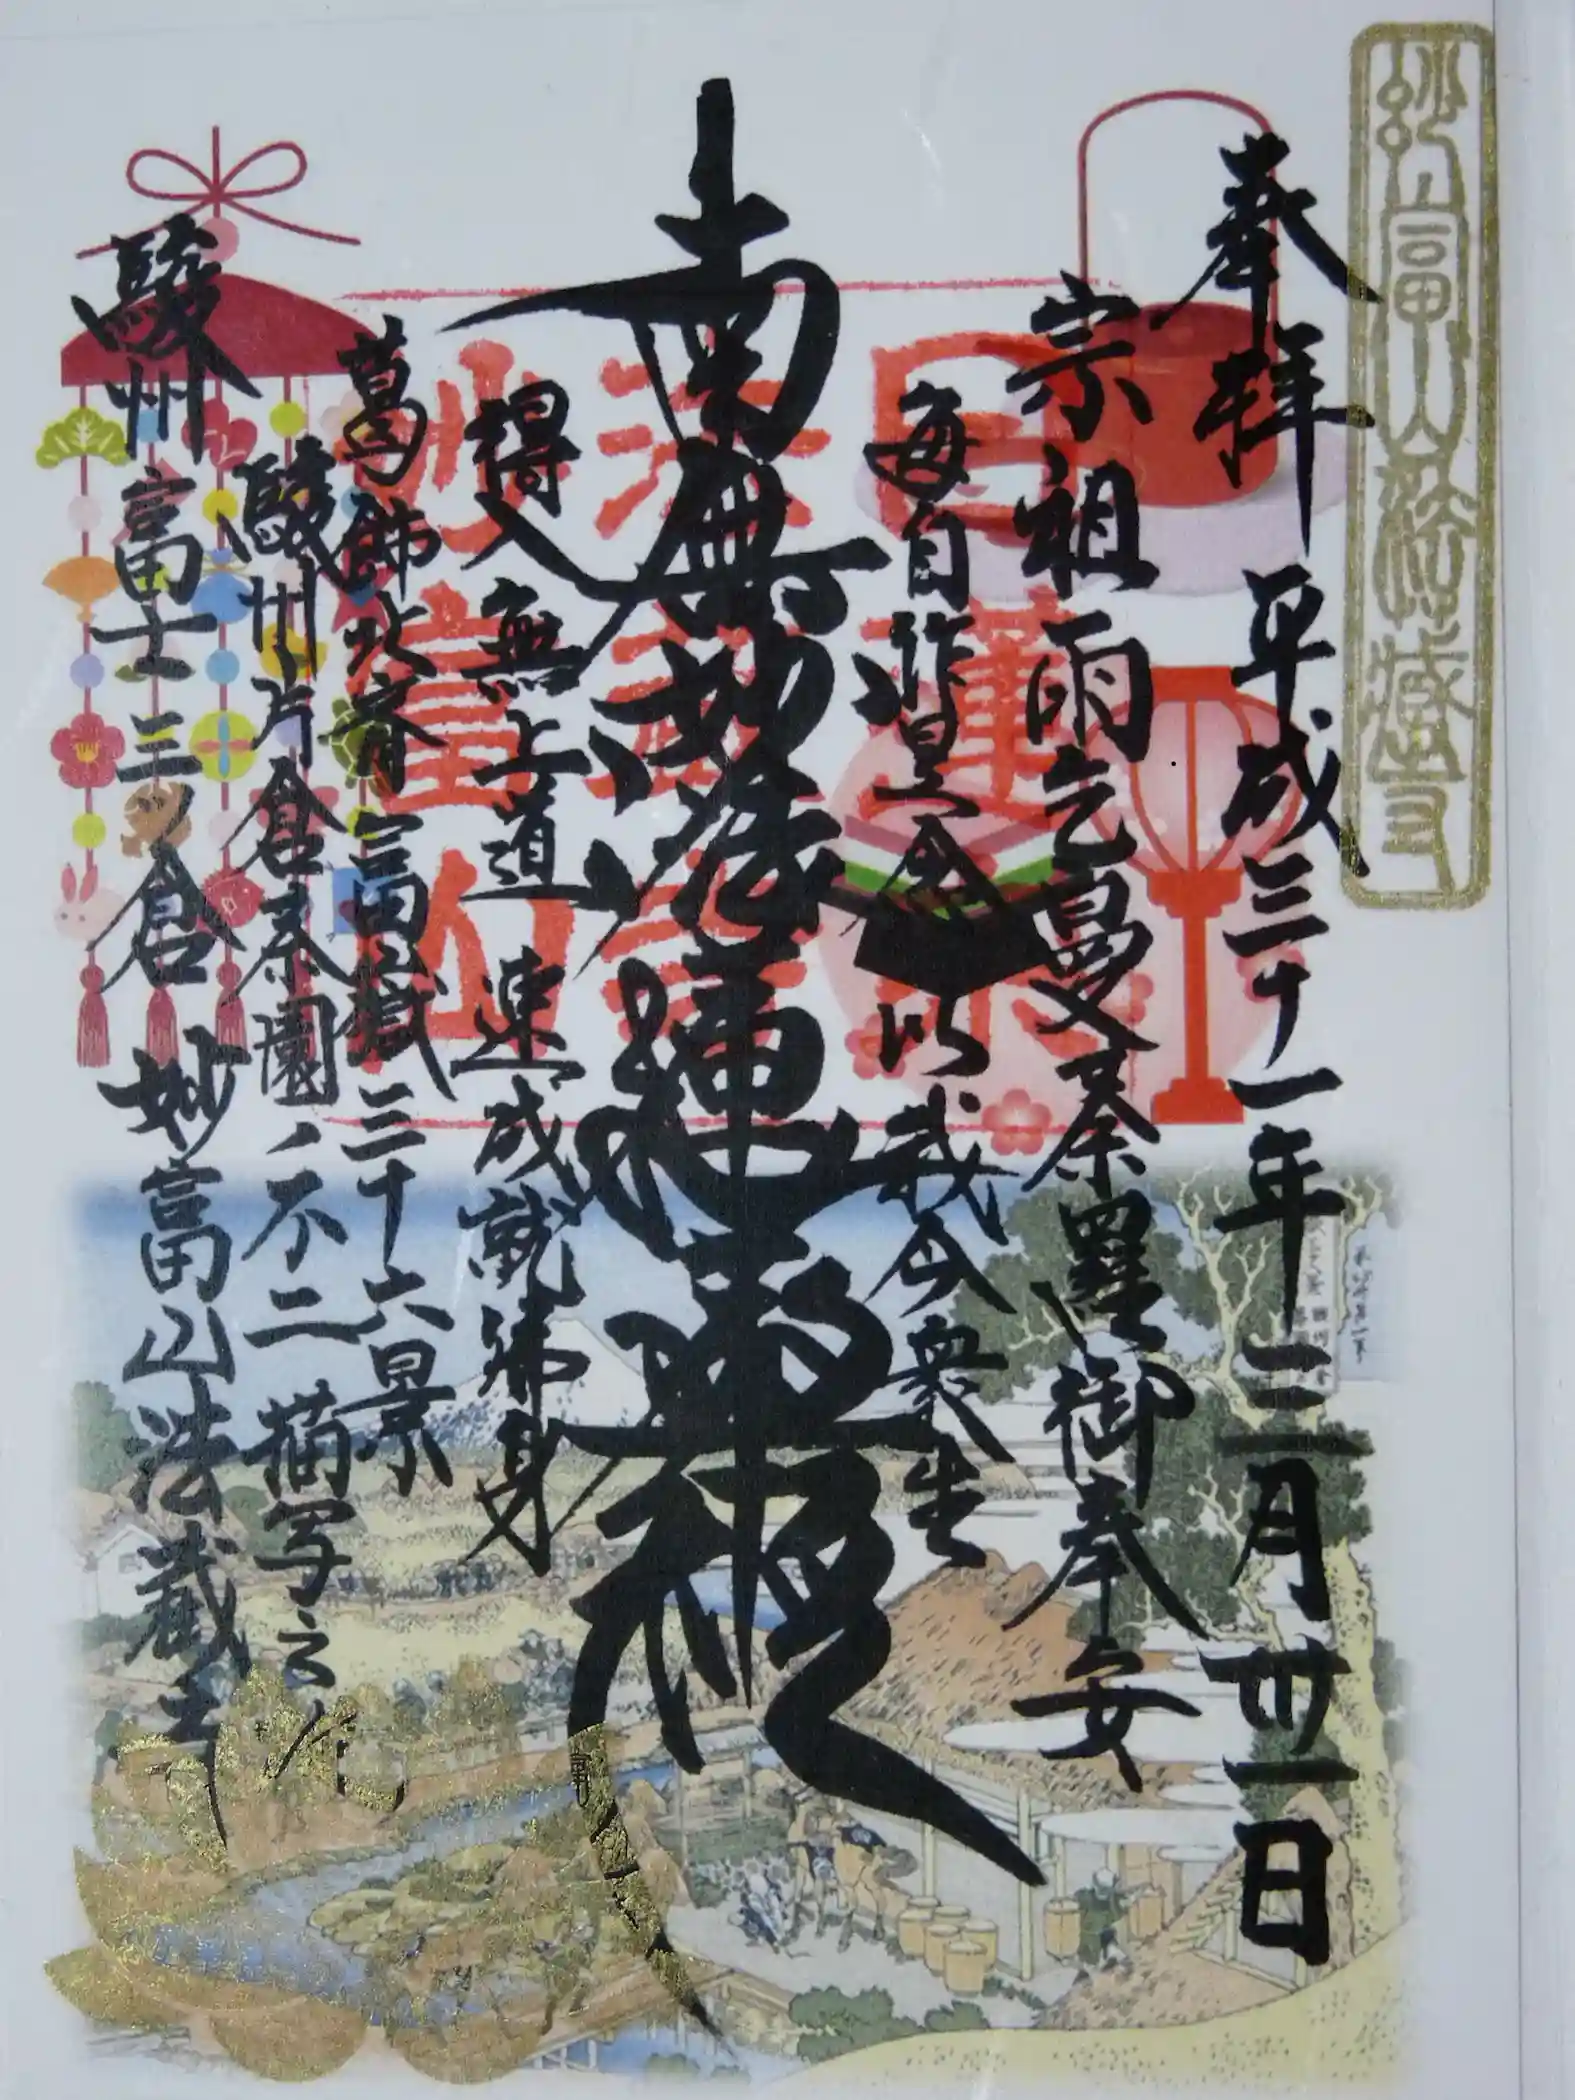 妙富山法蔵寺
奉拝 平成三十一年三月卅一日
宗祖雨乞曼荼羅御奉安
毎自作是念 以我令衆生
南無妙法蓮華経
得入無上道 速成就佛身
葛飾北斎 富嶽三十六景
駿州片倉茶園ノ不二 描写之地
駿州富士三ノ倉 妙富山法蔵寺
日蓮宗
法
妙富山